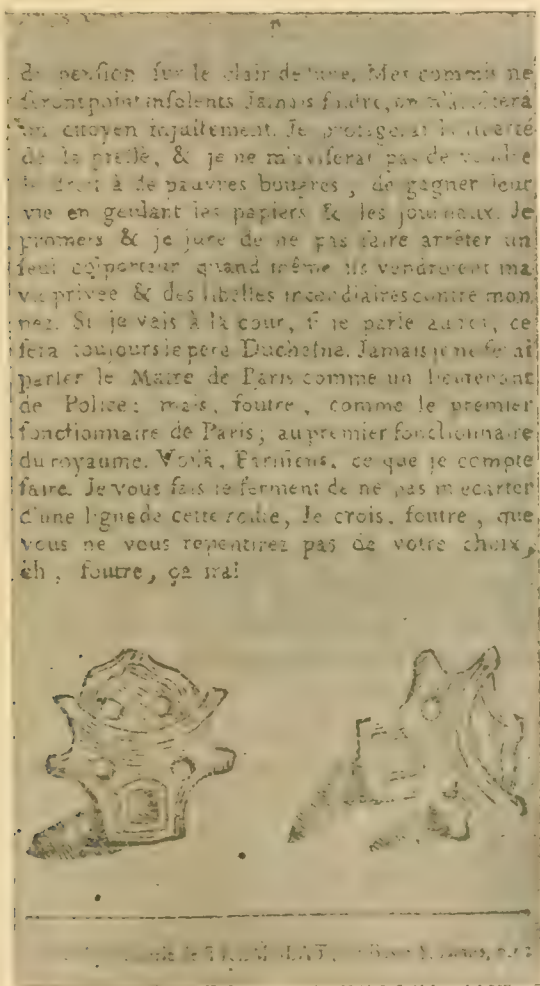 de pension sur le clair de lune. Mes commis ne
seront point insolents. Jamais foutre, on n'arrêtera
un citoyen injustement. Je protégerai la liberté
de la presse, & je ne m'aviserai pas de vendre
le droit à de pauvres bougres, de gagner leur
vie en geulant les papiers & les journaux. Je
promets & je jure de ne pas faire arrêter un
seul colporteur quand même ils vendroient ma
vie privée & des libelles incendiaires contre mon
nez. Si je vais à la cour, si je parle au roi, ce
sera toujours le pere Duchesne. Jamais je ne ferai
parler le Maire de Paris comme un lieutenant
de Police: mais, foutre, comme le premier
fonctionnaire de Paris; au premier fonctionnaire
du royaume. Voilà, Parisiens, ce que je compte
faire. Je vous fais le serment de ne pas m'écarter
d'une ligne de cette route, Je crois, foutre, que
vous ne vous repentirez pas de votre choix,
eh, foutre, ça ira!
de